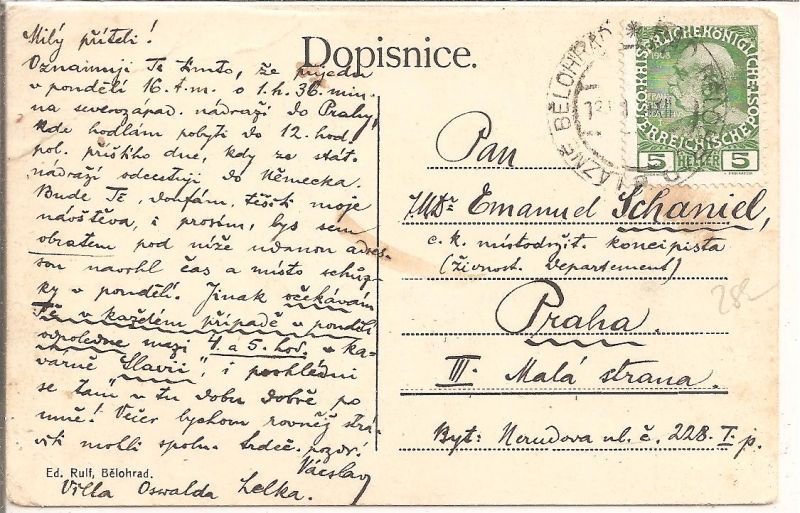 Dopisnice.
Milý příteli!
Oznamuji Ti tímto, že přijedu
v pondělí 16. t. m. o 1. h. 36. min.
na severozápad. nádraží do Prahy,
kde hodlám pobýti do 12. hod.
pol. příštího dne, kdy ze stát.
nádraží odcestuji do Německa.
Bude Tě, doufám, těšiti moje
návštěva, i prosím, bys sem
obratem pod níže udanou adres-
sou navrhl čas a místo schůz-
ky v pondělí. Jinak očekávám
Tě v každém případě v pondělí
odpoledne mezi 4 a 5. hod. v ka-
várně "Slavii", i poohlédni
se tam v tu dobu dobře po
mně! Večer bychom rovněž strá-
viti mohli spolu. Srdeč. pozdr.
Václav
Ed. Rulf, Bělohrad.
Villa Oswalda
Pan
JUDr. Emanuel Schaniel,
c. k. místodržit. koncipista
(živnost. departement)
Praha.
III. Malá strana.
Byt: Nerudova ul. č. 228. I. p.
282
LÁZNĚ BĚLOHRAD
KAISERLICHE KÖNIGLICHE
ÖSTERREICHISCHE
1908
5 HELLER 5